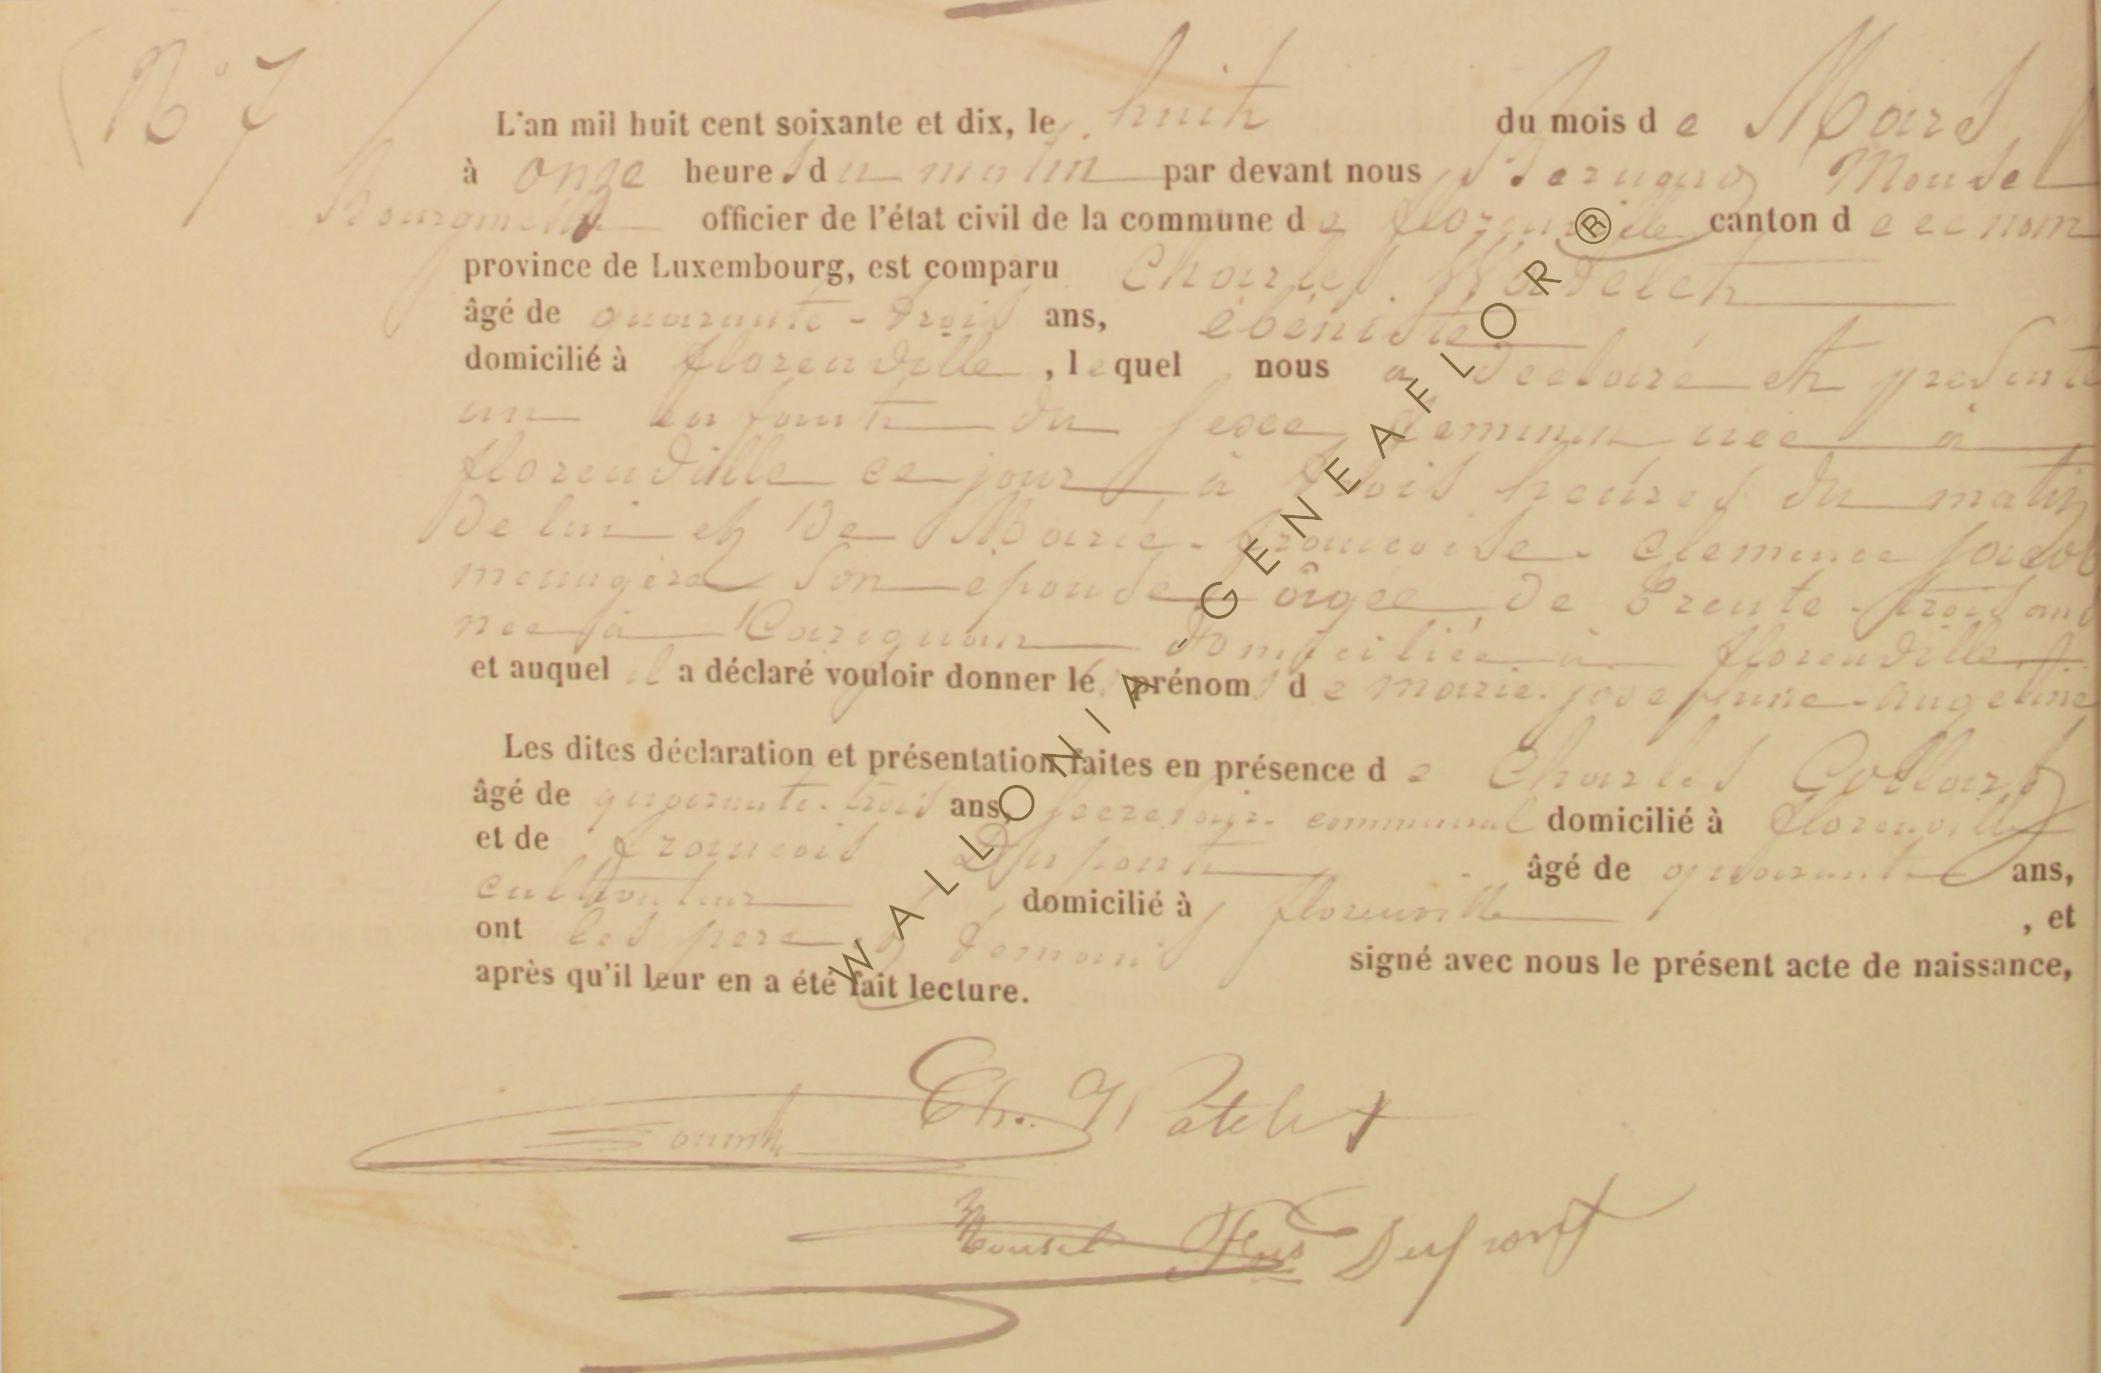 N° 7
L'an mil huit cent soixante et dix, le huit du mois de Mars
à onze heures du matin par devant nous Mousel
Bourgmestre officier de l'état civil de la commune de florenville canton de ce nom
province de Luxembourg, est comparu Charles Watelet
âgé de quarante-trois ans, ébéniste
domicilié à florenville, lequel nous a déclaré et presenté
un enfant du sexe feminin née à
florenville ce jour à trois heures du matin
de lui et de Marie-francoise-clemence Jacob
menagère son epouse âgée de trente-trois ans
née à Carignan domiciliée à florenville
et auquel il a déclaré vouloir donner lés prénoms de marie-josephine-angeline
Les dites déclaration et présentation faites en présence de Charles Collart
âgé de quarante-trois ans, secretaire communal domicilié à florenville
et de francois Dupont âgé de quarante ans,
cultivateur domicilié à florenville, et
ont les pere et temoins signé avec nous le présent acte de naissance,
après qu'il leur en a été fait lecture.
Ch. Watelet
Mousel Fçois Dupont
WALLONIA - GENEAFLOR ®